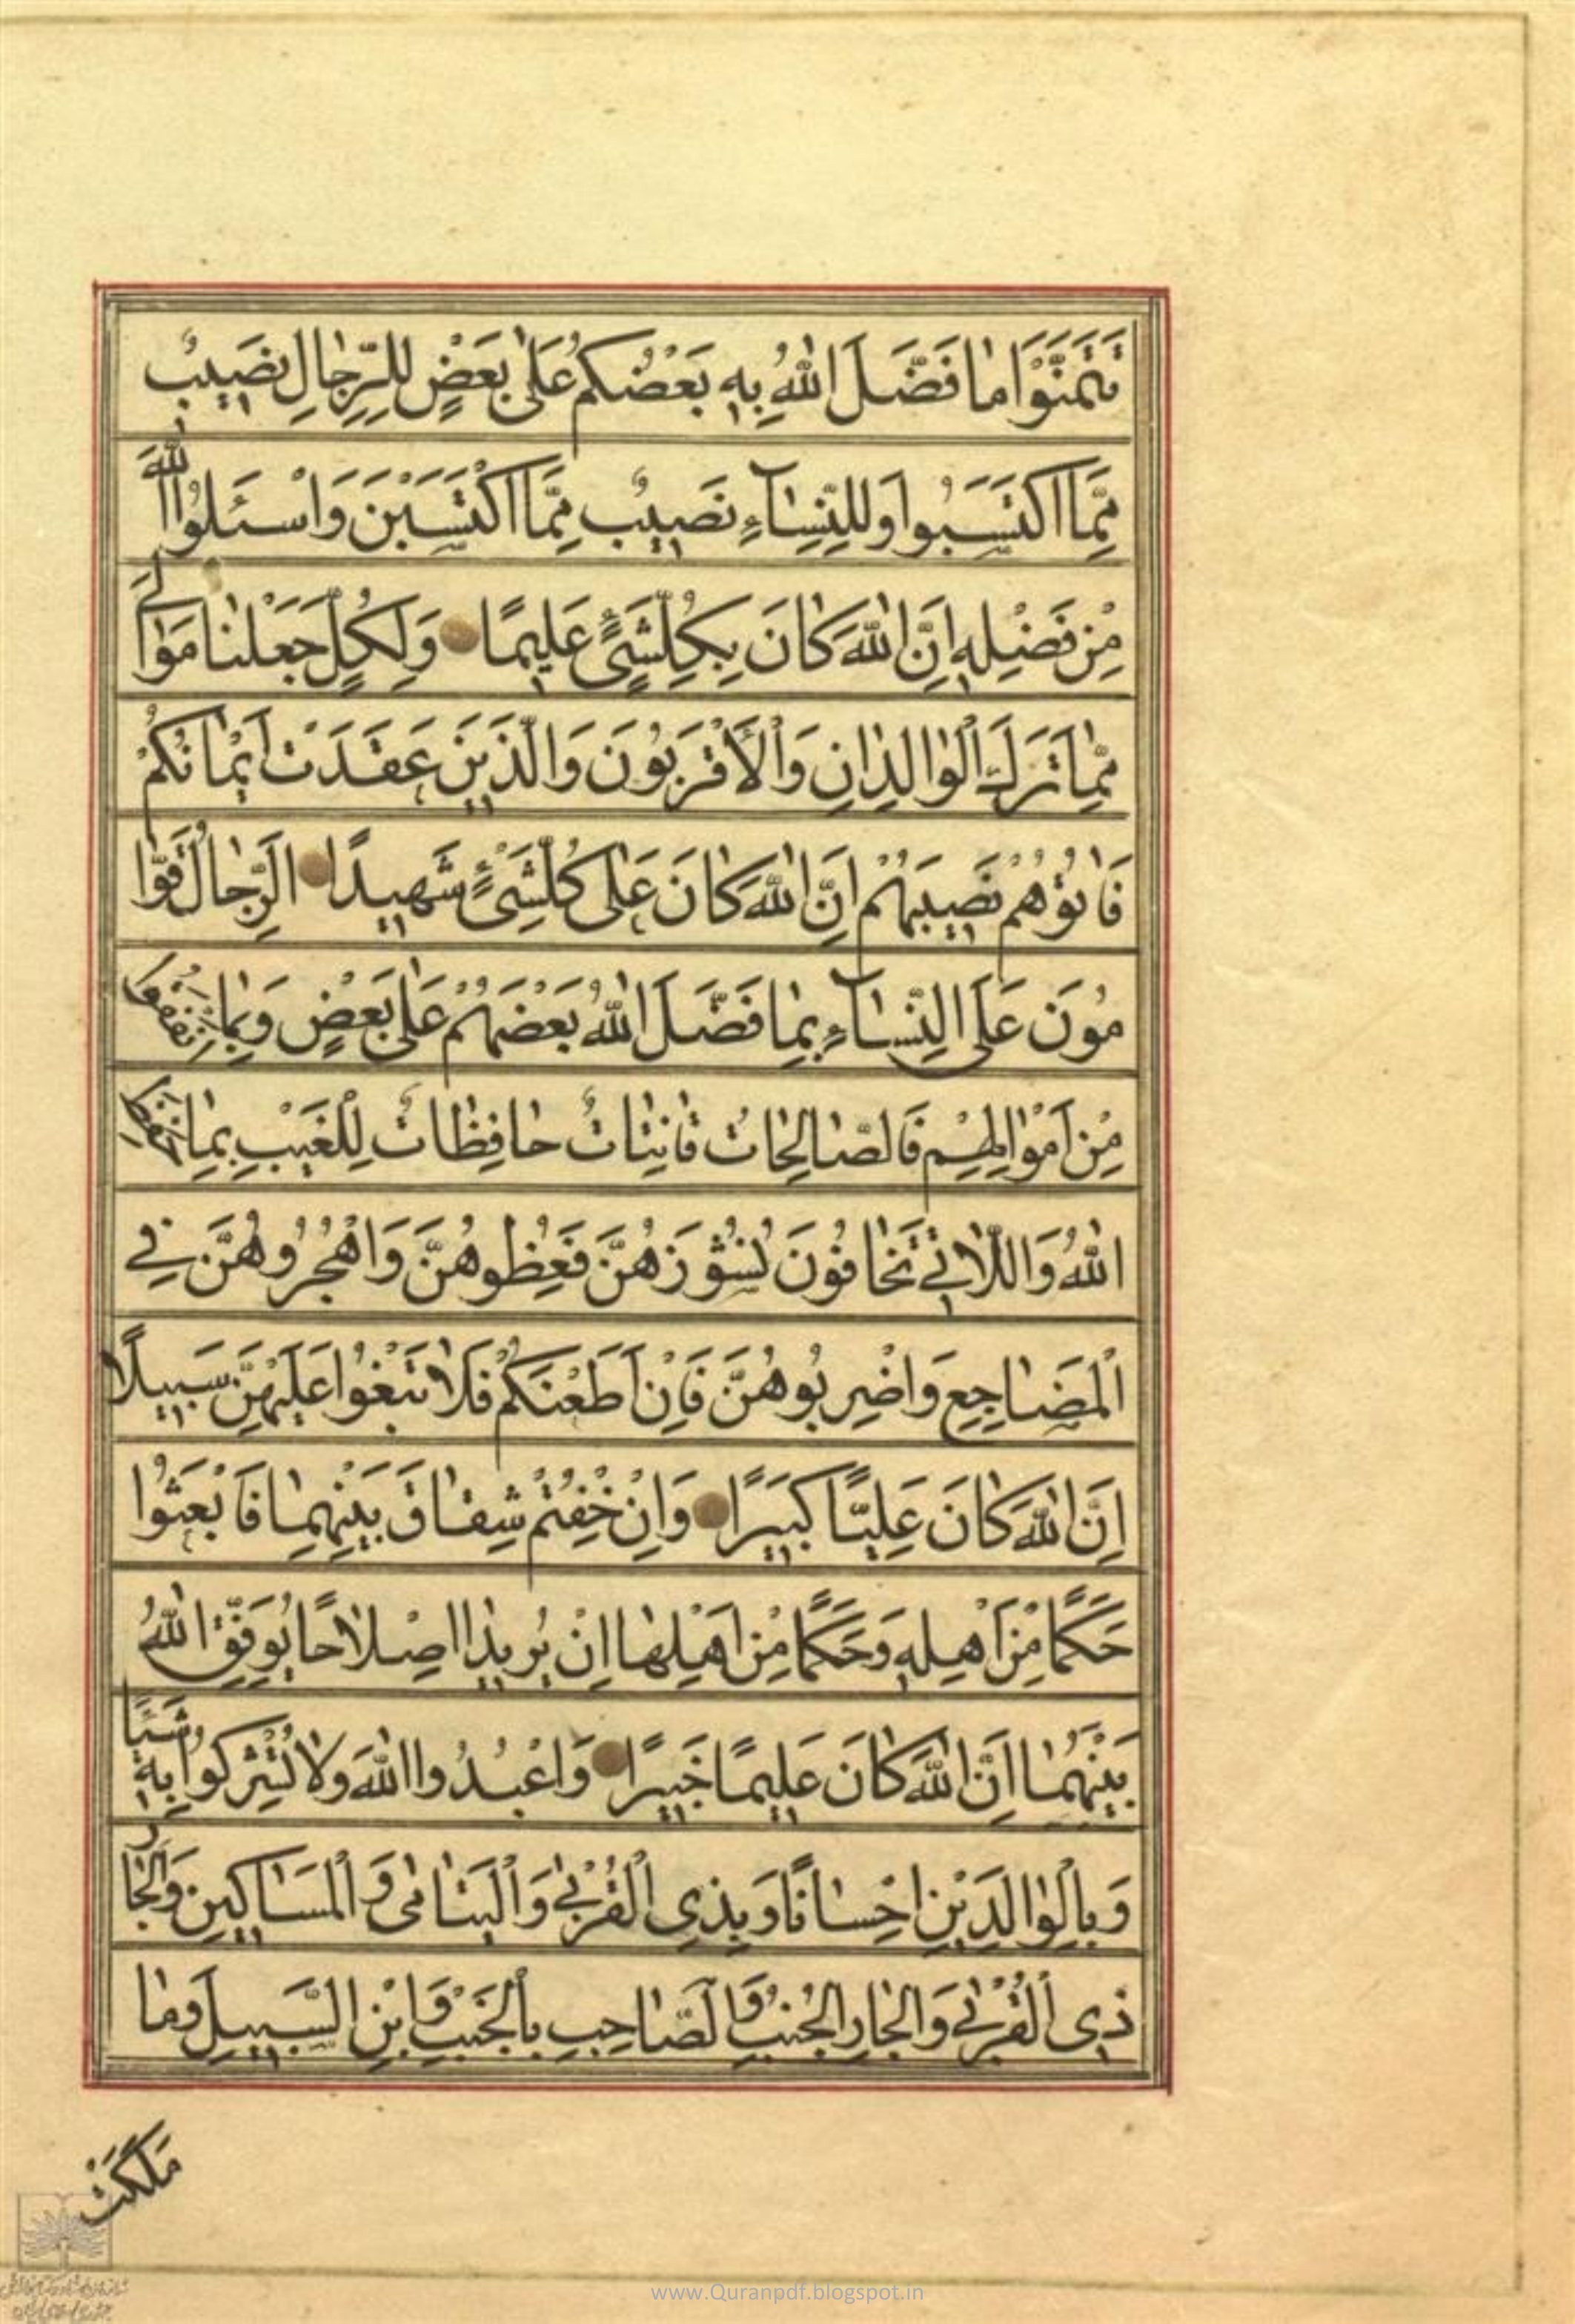 تَتَمَنَّوْا مٰا فَضَّلَ اللّٰهُ بِهِ بَعْضَكُمْ عَلىٰ بَعْضٍ لِلرِّجٰالِ نَصيبٌ
مِمَّا اكْتَسَبُوا وَلِلنِّسٰآءِ نَصيبٌ مِمَّا اكْتَسَبْنَ وَاسْئَلُوا اللّٰهَ
مِنْ فَضْلِهِ اِنَّ اللّٰهَ كٰانَ بِكُلِّ شَىْءٍ عَليمًا وَلِكُلٍّ جَعَلْنٰا مَوٰالِىَ
مِمّٰا تَرَكَ الْوٰالِدٰانِ وَالْاَقْرَبُونَ وَالَّذينَ عَقَدَتْ اَيْمٰانُكُمْ
فَاٰتُوهُمْ نَصيبَهُمْ اِنَّ اللّٰهَ كٰانَ عَلىٰ كُلِّ شَىْءٍ شَهيدًا اَلرِّجٰالُ قَوّٰا
مُونَ عَلَى النِّسٰآءِ بِمٰا فَضَّلَ اللّٰهُ بَعْضَهُمْ عَلىٰ بَعْضٍ وَبِمٰا اَنْفَقُوا
مِنْ اَمْوٰالِهِمْ فَالصّٰالِحٰاتُ قٰانِتٰاتٌ حٰافِظٰاتٌ لِلْغَيْبِ بِمٰا حَفِظَ
اللّٰهُ وَاللّٰاتي تَخٰافُونَ نُشُوزَهُنَّ فَعِظُوهُنَّ وَاهْجُرُوهُنَّ فِي
الْمَضٰاجِعِ وَاضْرِبُوهُنَّ فَاِنْ اَطَعْنَكُمْ فَلٰا تَبْغُوا عَلَيْهِنَّ سَبيلًا
اِنَّ اللّٰهَ كٰانَ عَلِيًّا كَبيرًا وَاِنْ خِفْتُمْ شِقٰاقَ بَيْنِهِمٰا فَابْعَثُوا
حَكَمًا مِنْ اَهْلِهِ وَحَكَمًا مِنْ اَهْلِهٰا اِنْ يُريدٰا اِصْلٰاحًا يُوَفِّقِ اللّٰهُ
بَيْنَهُمٰا اِنَّ اللّٰهَ كٰانَ عَليمًا خَبيرًا وَاعْبُدُوا اللّٰهَ وَلٰا تُشْرِكُوا بِهِ شَيْئًا
وَبِالْوٰالِدَيْنِ اِحْسٰانًا وَبِذِى الْقُرْبىٰ وَالْيَتٰامىٰ وَالْمَسٰاكينِ وَالْجٰارِ
ذِى الْقُرْبىٰ وَالْجٰارِ الْجُنُبِ وَالصّٰاحِبِ بِالْجَنْبِ وَابْنِ السَّبيلِ وَمٰا
مَلَكَتْ
www.Quranpdf.blogspot.in